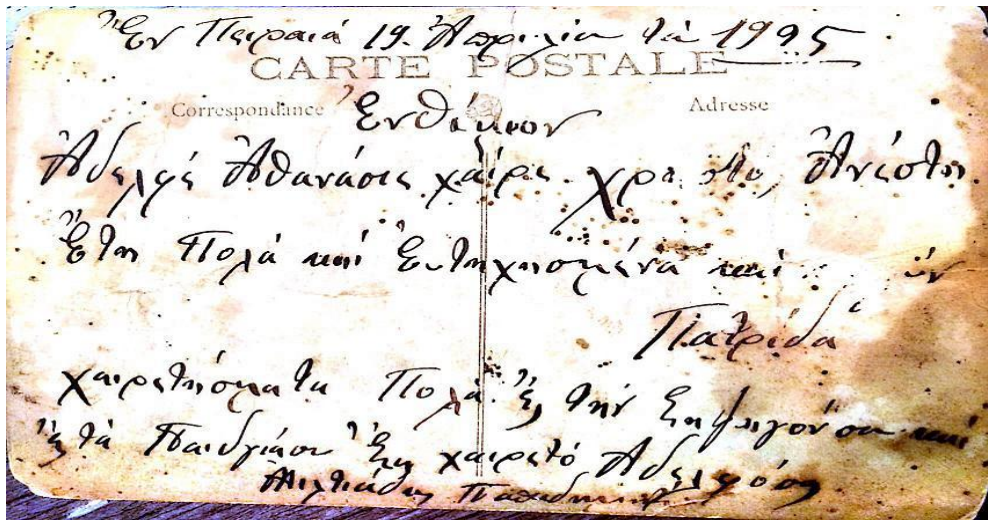 Ἐν Πειραιά 19. Ἀπριλίου τά 1925
CARTE POSTALE
Correspondance Adresse
Ἐνθύμιον
Ἀδελφέ Ἀθανάσιε χαίρε. Χρισtός Ἀνέστη
Ἔτη Πολά καί Ἐυτηχησμένα καί
Πατρίδα
χαιρετήσματα Πολά Ἐς τήν καί
Ἐς τά Παιδγιάσου Ἐς χαιρετό Ἀδελφόσας
Μιλτιάδης